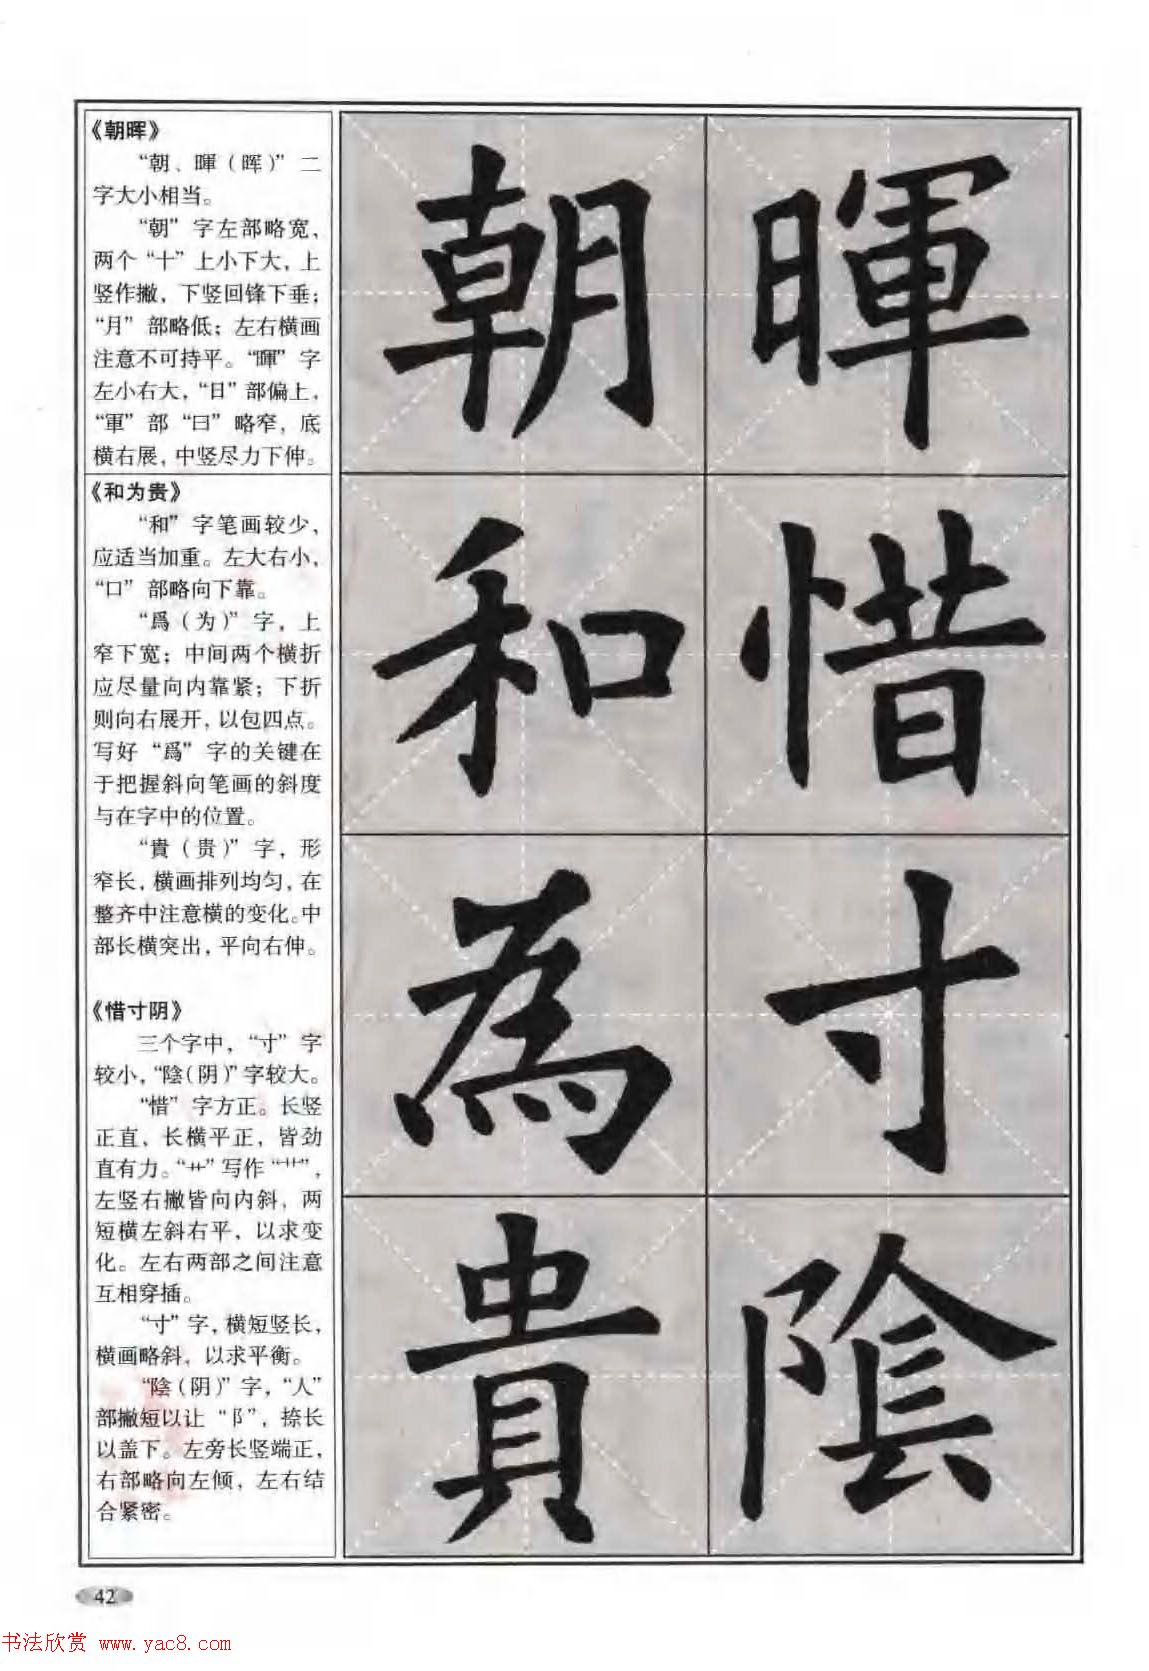 《朝晖》
“朝、暉（晖）”二
字大小相当。
“朝”字左部略宽，
两个“十”上小下大，上
竖作撇，下竖回锋下垂；
“月”部略低；左右横画
注意不可持平。“暉”字
左小右大，“日”部偏上，
“軍”部“曰”略窄，底
横右展，中竖尽力下伸。
《和为贵》
“和”字笔画较少，
应适当加重。左大右小，
“口”部略向下靠。
“爲（为）”字，上
窄下宽；中间两个横折
应尽量向内靠紧；下折
则向右展开，以包四点。
写好“爲”字的关键在
于把握斜向笔画的斜度
与在字中的位置。
“貴（贵）”字，形
窄长，横画排列均匀，在
整齐中注意横的变化。中
部长横突出，平向右伸。
《惜寸阴》
三个字中，“寸”字
较小，“陰（阴）”字较大。
“惜”字方正。长竖
正直，长横平正，皆劲
直有力。“艹”写作“䒑”，
左竖右撇皆向内斜，两
短横左斜右平，以求变
化。左右两部之间注意
互相穿插。
“寸”字，横短竖长，
横画略斜，以求平衡。
“陰（阴）”字，“人”
部撇短以让“阝”，捺长
以盖下。左旁长竖端正，
右部略向左倾，左右结
合紧密。
朝 暉
和 惜
為 寸
貴 陰
42
书法欣赏 www.yac8.com